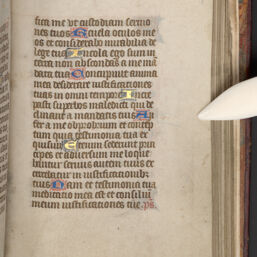 fica me ut custodiam sermo
nes tuos Revela oculos me
os et considerabo mirabilia de
lege tua Incola ego sum in
terra non abscondas a me man
data tua Concupivit anima
mea desiderare iustificationes
tuas in omni tempore Incre
pasti superbos maledicti qui de
clinant a mandatis tuis Au
fer a me obprobrium et contemp
tum quia testimonia tua ex
quisivi Etenim sederunt prin
cipes et adversum me loque
bantur servus autem tuus ex
ercebatur in iustificationib;
tuis Nam et testimonia tua
meditatio mea est et consilium
meum iustificationes tue. ps.